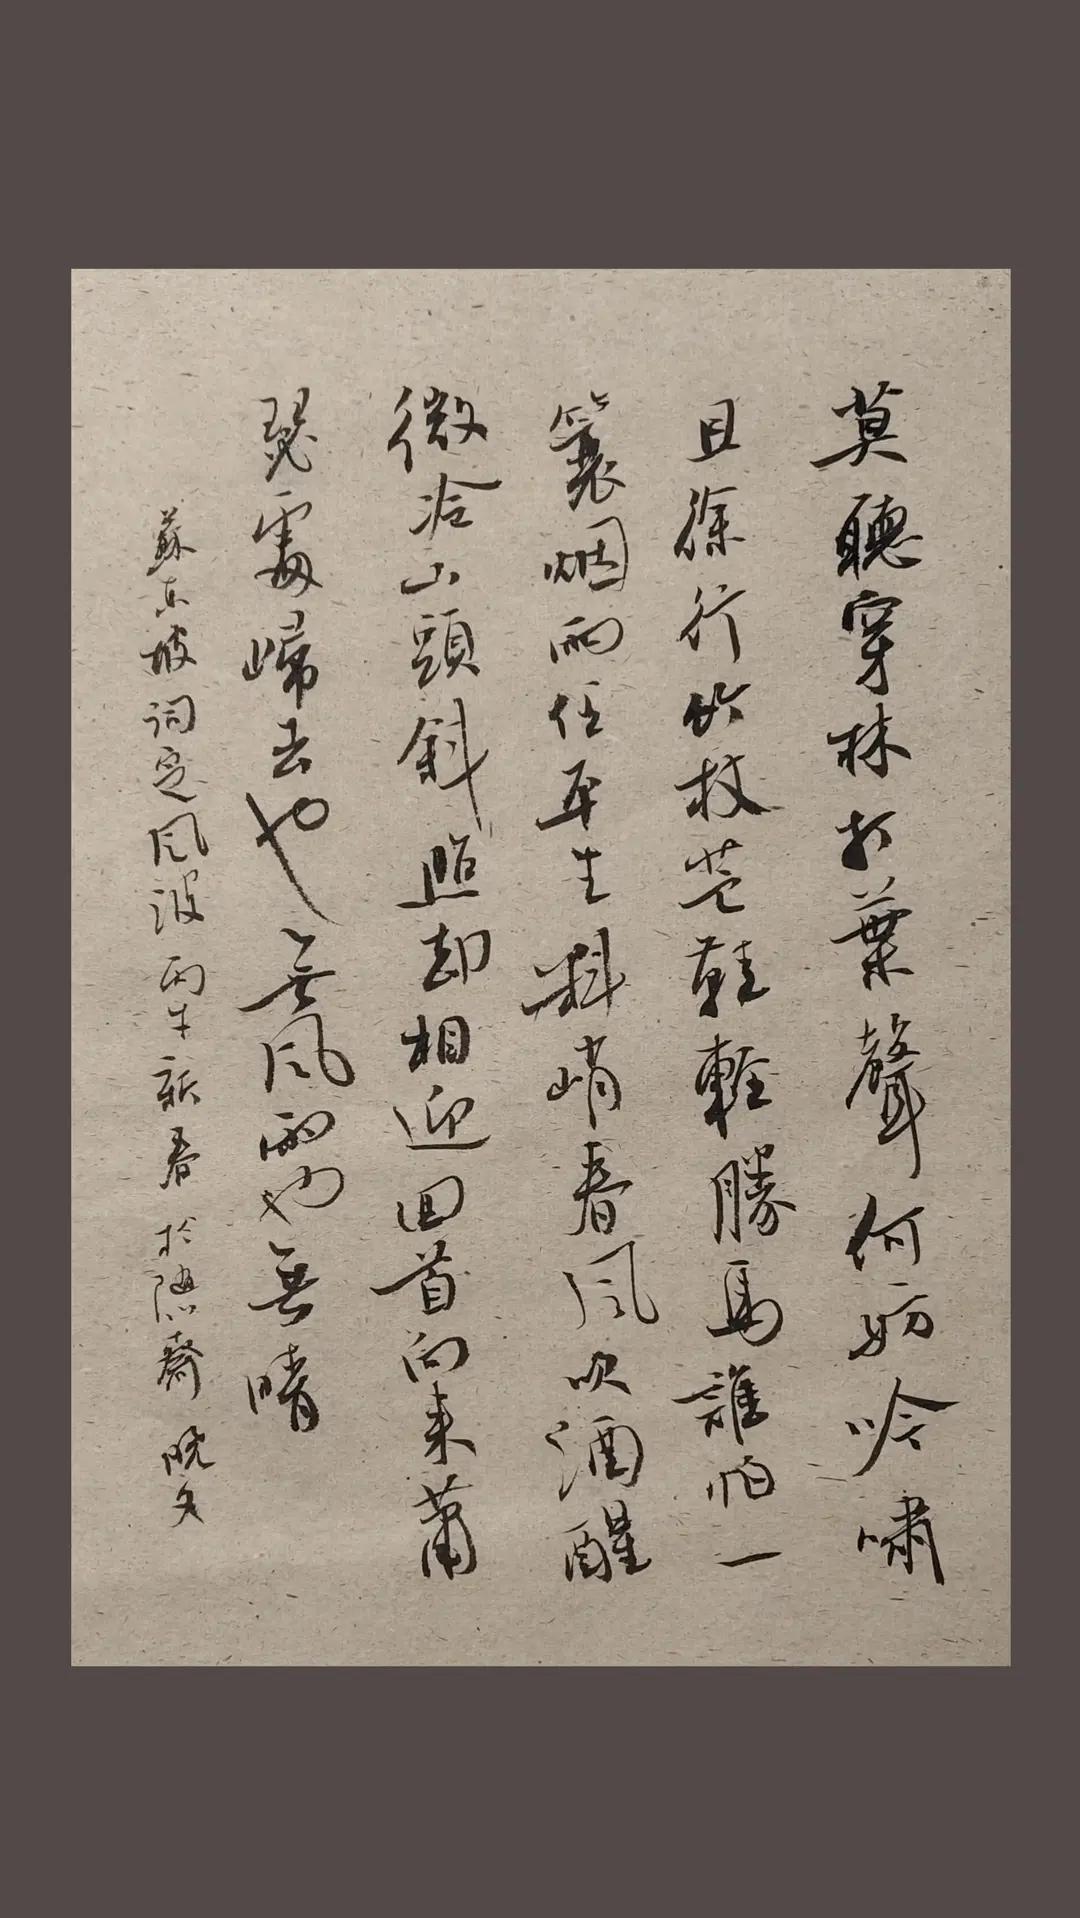 莫聽穿林打葉聲何妨吟嘯
且徐行竹杖芒鞋輕勝馬誰怕一
蓑烟雨任平生料峭春風吹酒醒
微冷山頭斜照却相迎回首向來蕭
瑟處歸去也無風雨也無晴
蘇東坡詞定風波丙午新春於隱齋晚文